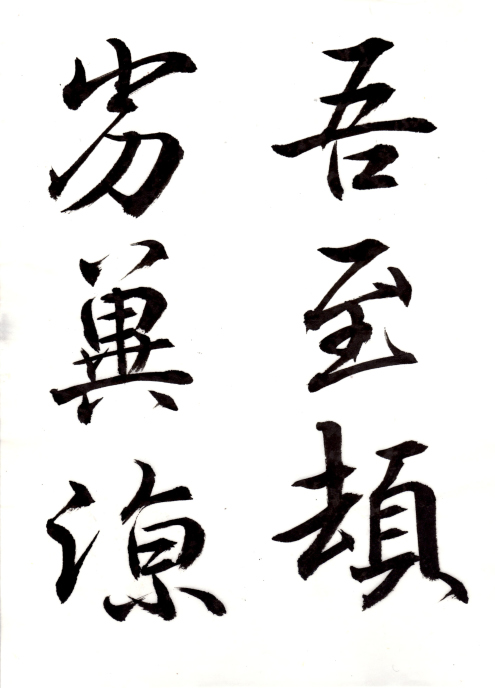 吾至頓
劣冀涼